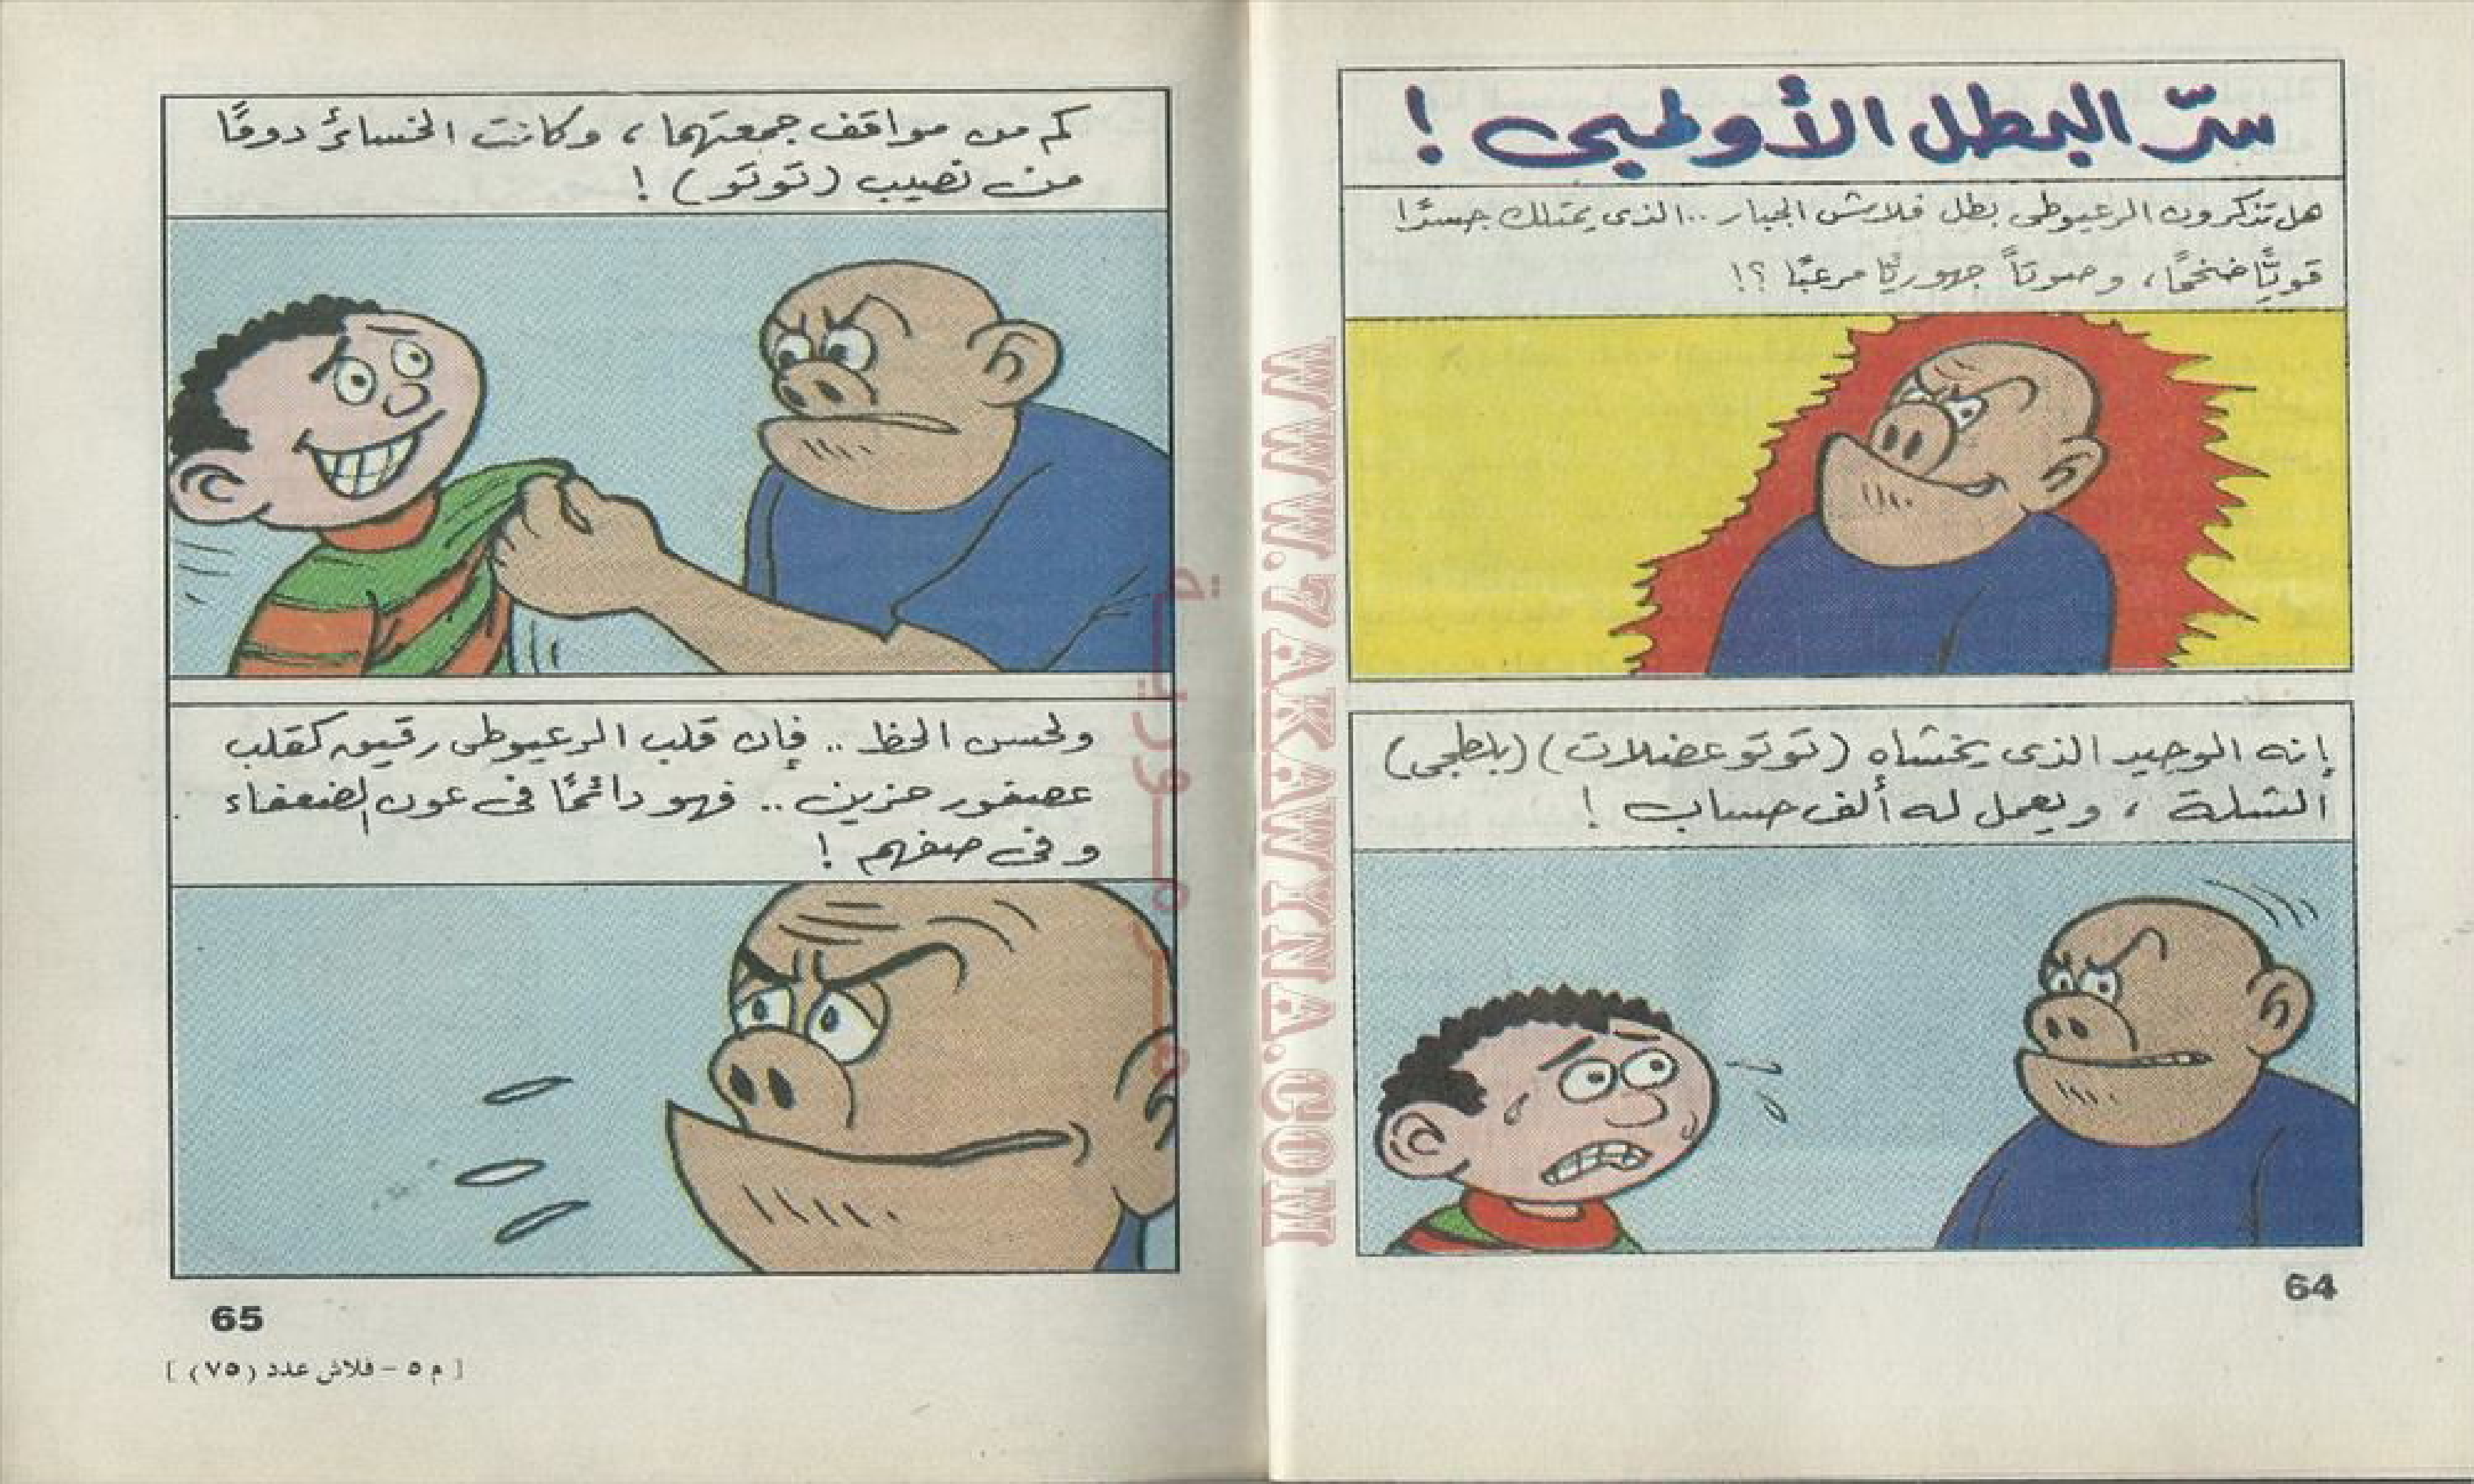 سرّ البطل الأولمبى !
هل تذكرون الرعبوطى بطل فلاش الجبار ..الذى يمتلك جسدًا
قويًّا ضخمًا ، وصوتاً جهوريًّا مرعبًا ؟!
إنه الوحيد الذى يخشاه (توتو عضلات) (بلطجى)
الشلة ، ويعمل له ألف حساب !
64
كم من مواقف جمعتهما ، وكانت الخسائر دومًا
من نصيب (تَوتَو) !
ولحسن الحظ .. فإن قلب الرعبوطى رقيق كقلب
عصفور حزين .. فهو دائمًا فى عون الضعفاء
وفى صفهم !
65
[ م ٥ – فلاش عدد (٧٥) ]
WWW.7AKAWYNA.COM